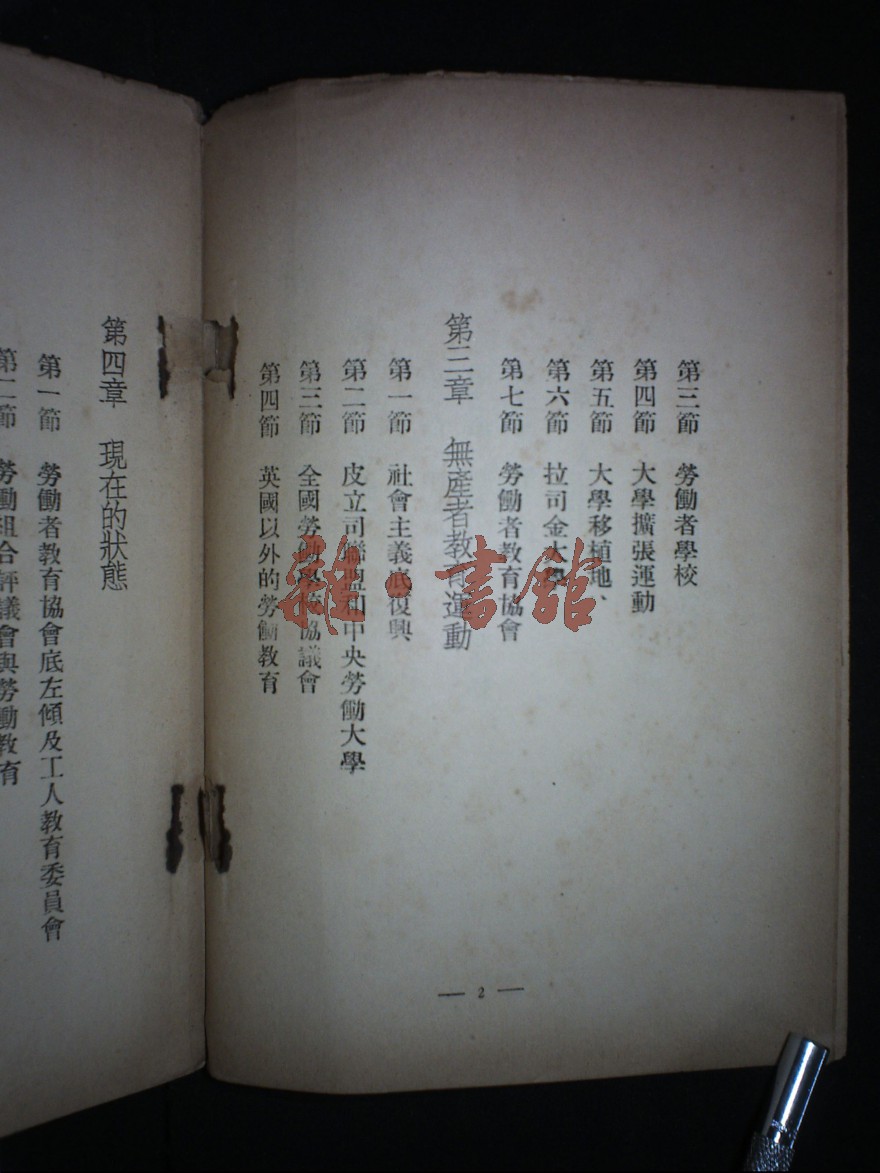 第三節　勞働者學校
第四節　大學擴張運動
第五節　大學移植地、
第六節　拉司金大學
第七節　勞働者教育協會
第三章　無產者教育運動
第一節　社會主義底復興
第二節　皮立司聯盟和中央勞働大學
第三節　全國勞働學校協議會
第四節　英國以外的勞働教育
— 2 —
第四章　現在的狀態
第一節　勞働者教育協會底左傾及工人教育委員會
第二節　勞働組合評議會與勞働教育
雜·書館